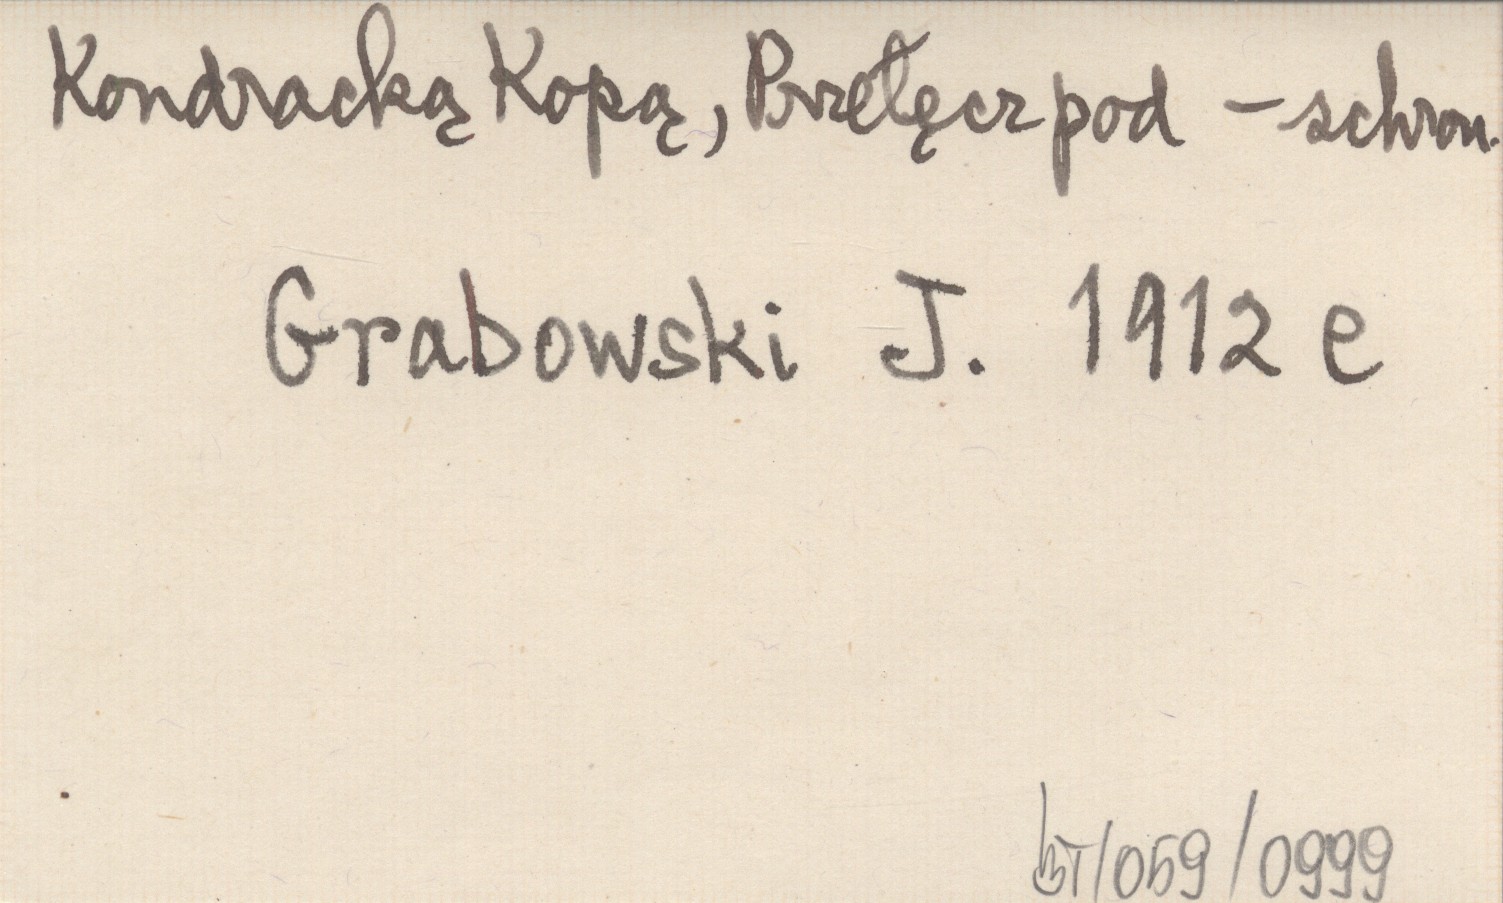 Kondracką Kopą, Przełęcz pod – schron.
Grabowski J. 1912 e
BT/059/0999